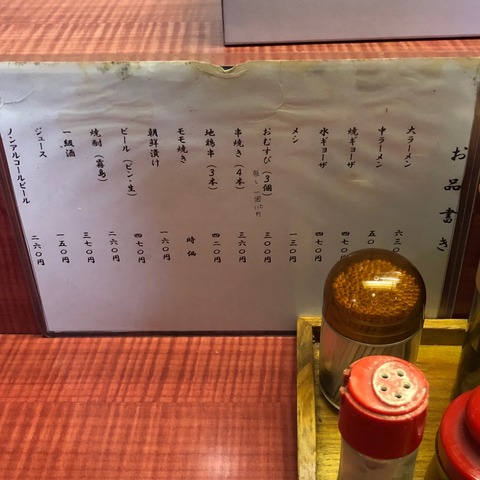 お品書き
大ラーメン 六三〇
中ラーメン 五〇
焼ギョーザ 四七〇円
水ギョーザ 四七〇円
メン 一三〇円
おむすび（3個） 三〇〇円
串焼き（4本） 三六〇円
地鶏串（3本） 四二〇円
モモ焼き 時価
朝鮮漬け 一六〇円
ビール（ビン・生） 四七〇円
焼酎（霧島） 二六〇円
一級酒 三七〇円
ジュース 一五〇円
ノンアルコールビール 二六〇円